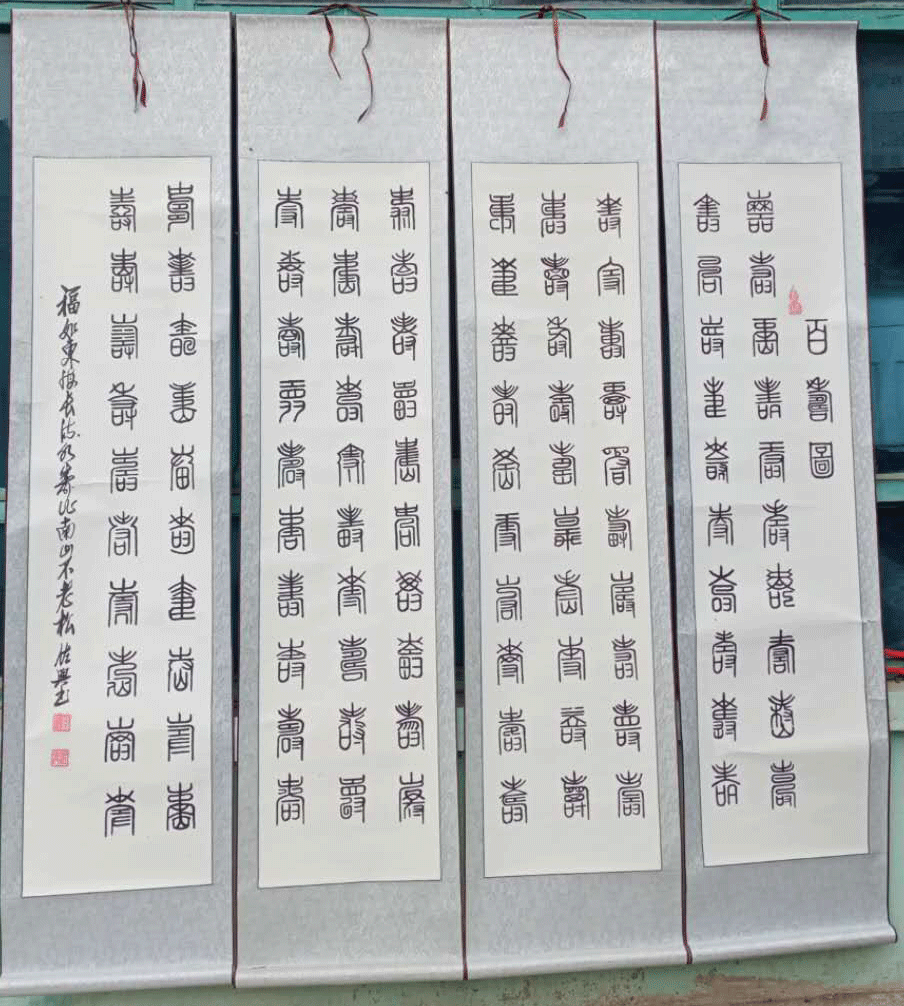 百壽圖
壽壽壽壽壽壽壽壽壽壽
壽壽壽壽壽壽壽壽壽壽
壽壽壽壽壽壽壽壽壽壽
壽壽壽壽壽壽壽壽壽壽
壽壽壽壽壽壽壽壽壽壽
壽壽壽壽壽壽壽壽壽壽
壽壽壽壽壽壽壽壽壽壽
壽壽壽壽壽壽壽壽壽壽
壽壽壽壽壽壽壽壽壽壽
壽壽壽壽壽壽壽壽壽壽
福如東海長流水壽比南山不老松 佐興书